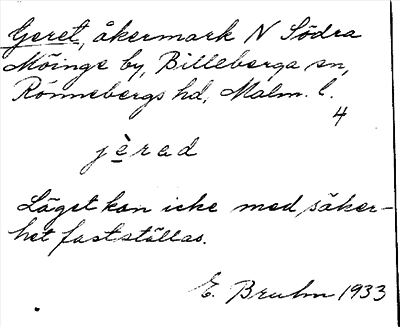 Geret, åkermark N Södra
Möinge by, Billeberga sn,
Rönnebergs hd, Malm. l.
4
jèrad
Läget kan icke med säker-
het fastställas.
E. Bruhn 1933